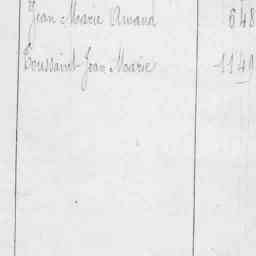 Jean Marie Amand 648
Toussaint Jean Marie 1149